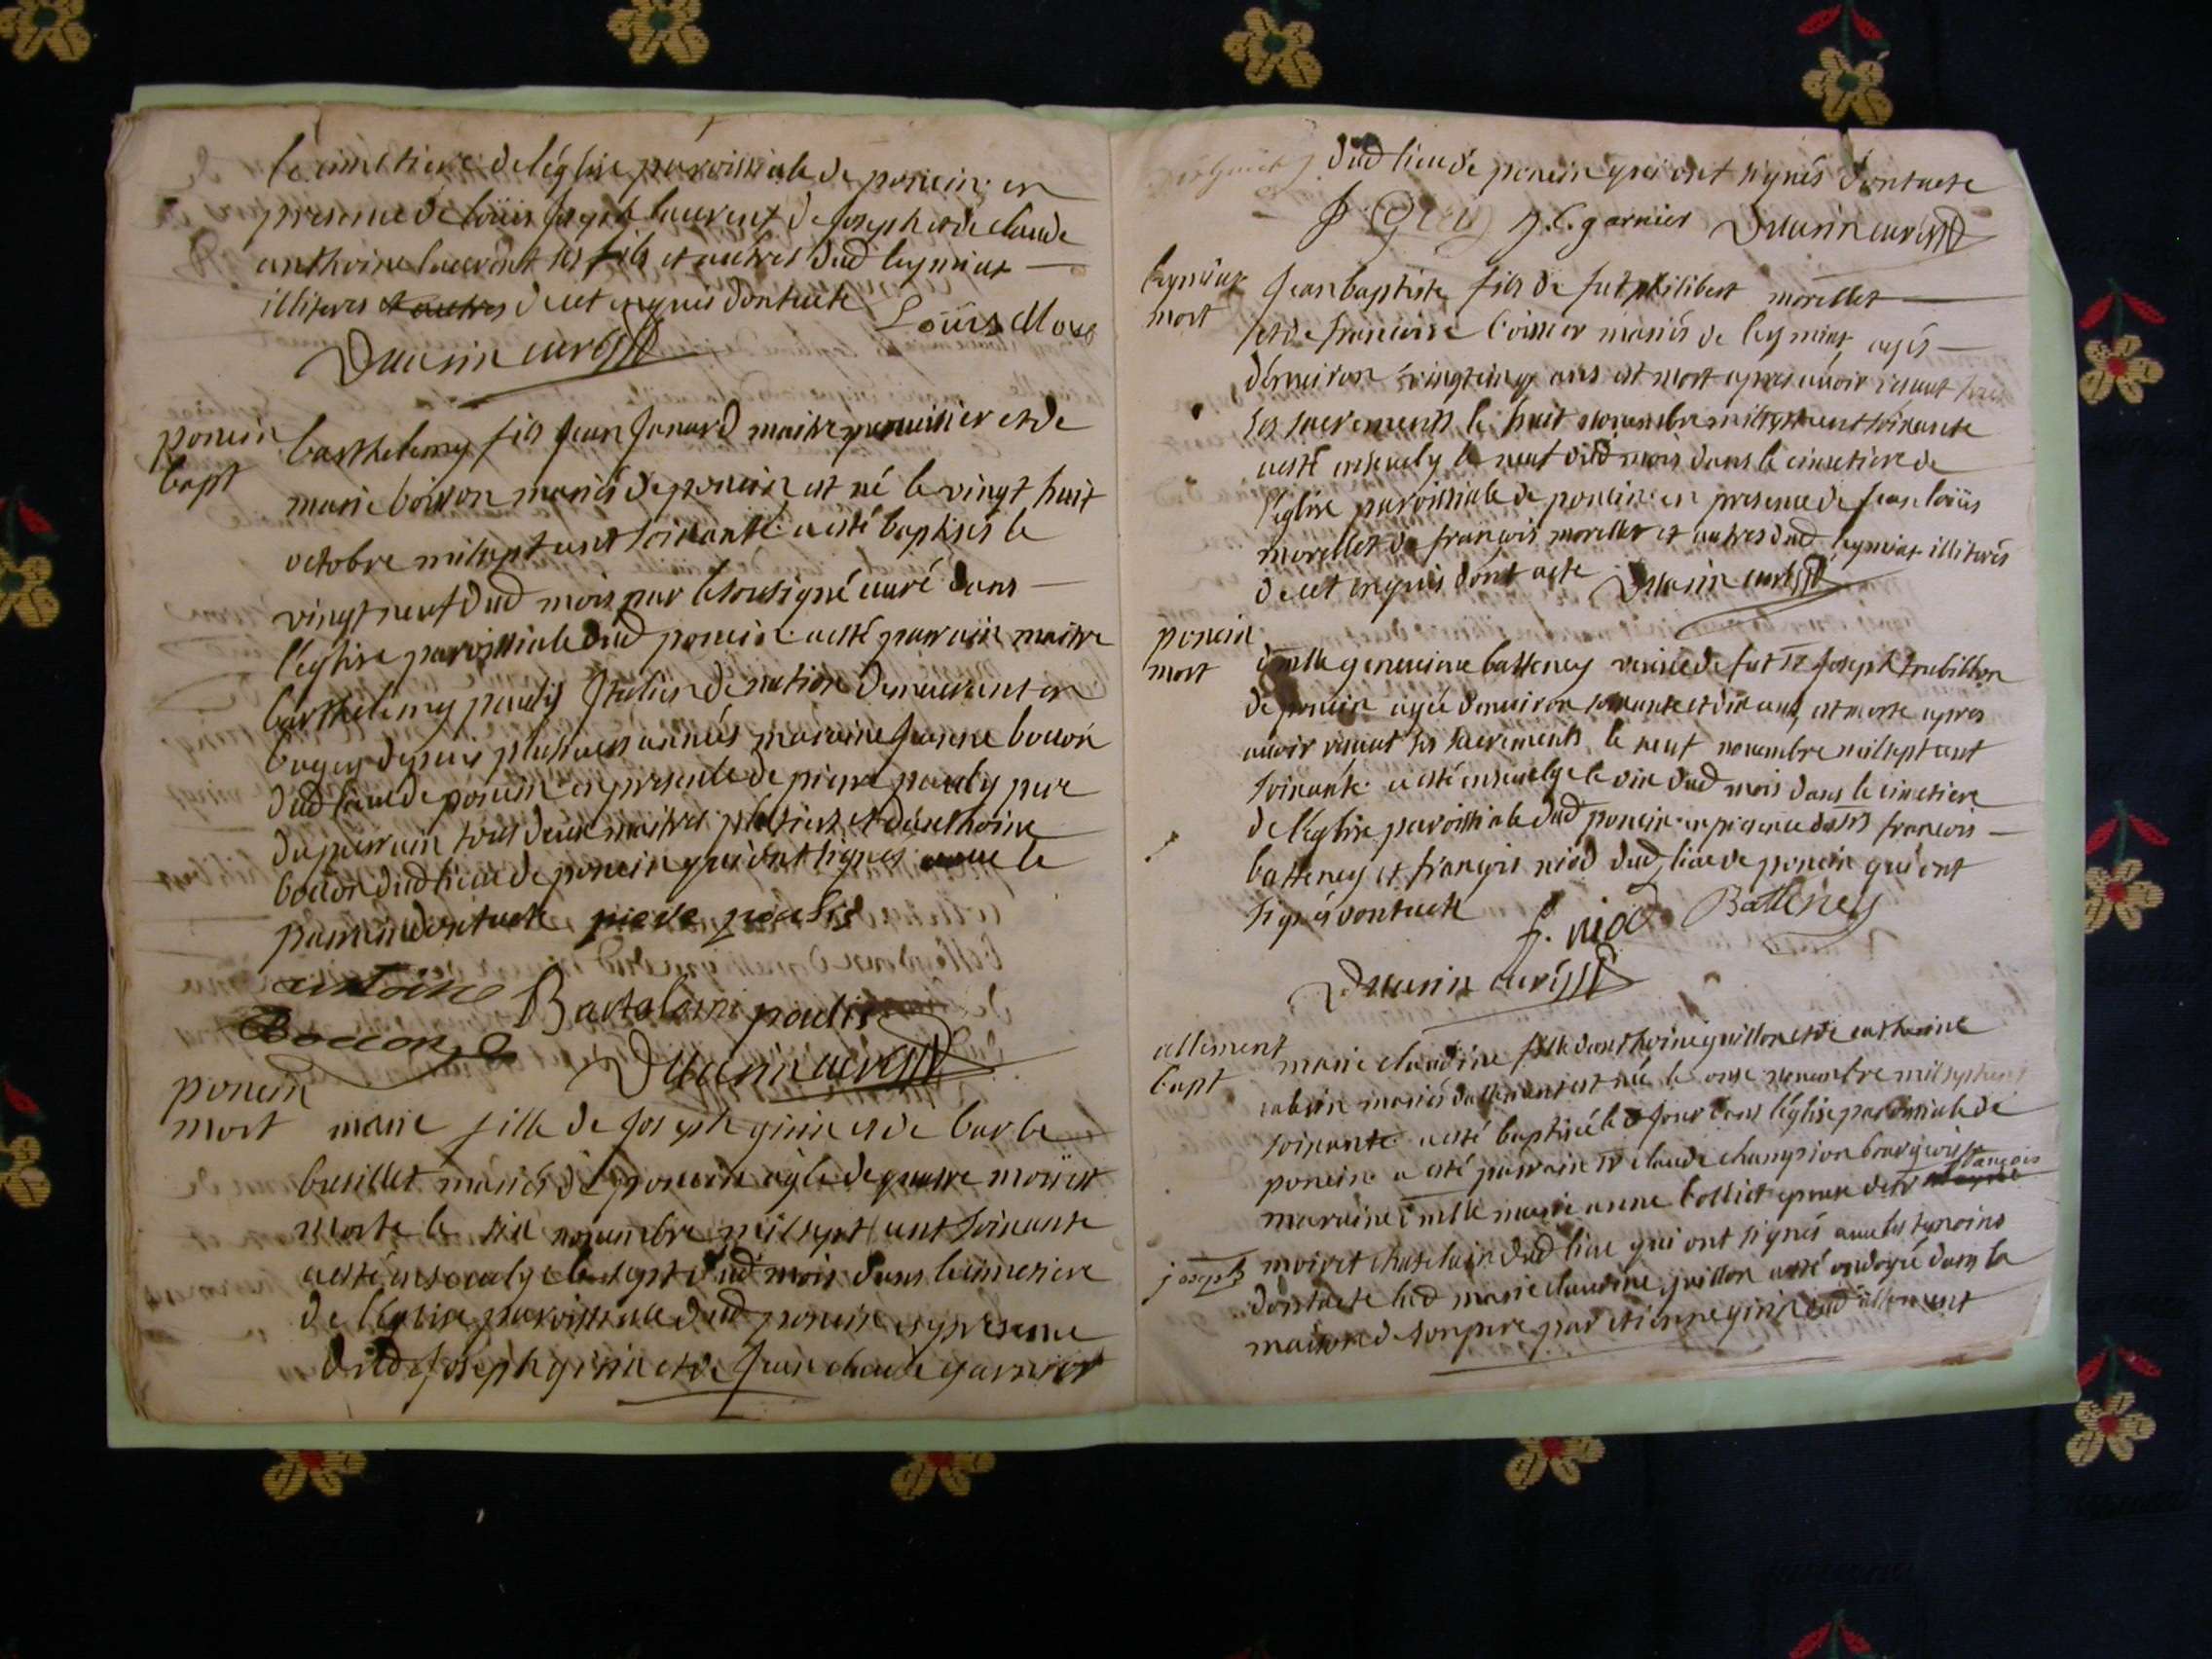 le cimetiere de léglise paroissiale de poncin en
presence de loüis Joseph laurent de Joseph et de claude
anthoine laurent ses fils et autres dud leymiat
illiteres et autres de cet enquis dont acte Loüis
Duurin curé
poncin
bapt
barthelemy fils Jean Janard maitre menuisier et de
marie boccon mariés de poncin est né le vingt huit
octobre mil sept cent soixante a esté baptisés le
vingt neuf dud mois par le sousigné curé dans
l'église paroissiale dud poncin a esté parrain maitre
barthelemy paulis Italien de nation demeurant en
bugey depuis plusieurs années maraine Jeanne boccon
dud lieu de poncin en presence de pierre pauly pere
du parrain tous deux maitres platriers et d'anthoine
boccon dud lieu de poncin qui ont signés avec le
parrain dont acte piere paulis
antoine
Boccon
Bartolomi paulis
Duurin curé
poncin
mort
marie fille de Joseph girin et de barbe
busillet mariés de poncin agée de quatre mois est
morte le six novembre mil sept cent soixante
a esté ensevelye le sept dud mois dans le cimetiere
de l'église paroissiale dud poncin en presence
dud Joseph girin et de Jean claude garnier
dud lieu de poncin qui ont signés dont acte
J. C. garnier Duurin curé
leymiat
mort
Jean baptiste fils de fut philibert morellet
et de francoise boisson mariés de leymiat agés
d'environ vingt cinq ans est mort apres avoir receut tous
ses sacrements le huit novembre mil sept cent soixante
a esté ensevely le neuf dud mois dans le cimetiere de
l'église paroissiale de poncin en presence de Jean loüis
morellet de françois morellet et autres dud leymiat illiterés
de cet enquis dont acte Duurin curé
poncin
mort
d'mlle genevieve batteney veuve de fut sr Joseph trebillion
de poncin agée d'environ soixante et dix ans est morte apres
avoir receut ses sacrements le neuf novembre mil sept cent
soixante a esté ensevelye le dix dud mois dans le cimetiere
de l'église paroissiale dud poncin en presence de srs francois
batteney et françois niod dud lieu de poncin qui ont
signés dont acte f. niod Batteney
Duurin curé
allement
bapt
marie claudine fille d'anthoine guillon et de catherine
cabuin mariés d'allement est née le onze novembre mil sept cent
soixante a esté baptisée le d jour dans l'église paroissiale de
poncin a esté parrain sr claude champion bourgeois
maraine d'mlle marie anne bolliet epouse de sr françois
joseph
moiret chatelain dud lieu qui ont signés avec les temoins
dont acte lad marie claudine guillon a esté ondoyée dans la
maison de son pere par etienne girin dud allement